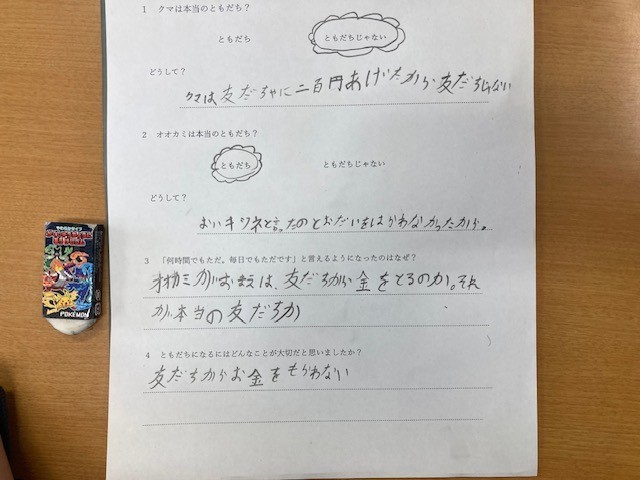 1 クマは本当のともだち？
ともだち ともだちじゃない
どうして？
クマは友だちに二百円あげたから友だちじゃない
2 オオカミは本当のともだち？
ともだち ともだちじゃない
どうして？
おいキツネと言ったのとおだいをはらわなかったから。
3 「何時間でもただ。毎日でもただです」と言えるようになったのはなぜ？
オオカミがお前は、友だちから金をとるのか。それ
が本当の友だちか
4 ともだちになるにはどんなことが大切だと思いましたか？
友だちからお金をもらわない
POKEMON